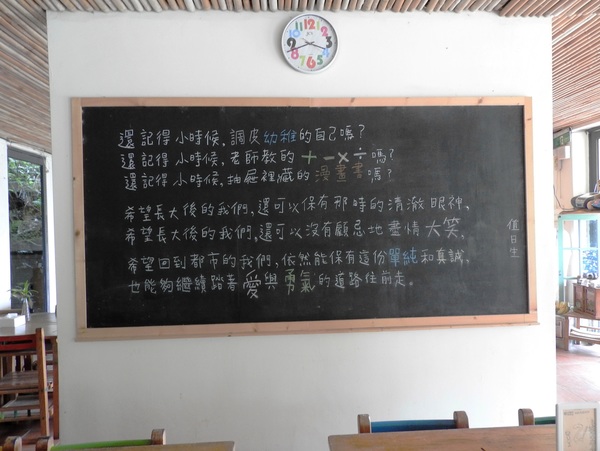 還記得小時候，調皮幼稚的自己嗎？
還記得小時候，老師教的＋－×÷嗎？
還記得小時候，抽屜裡藏的漫畫書嗎？
希望長大後的我們，還可以保有那時的清澈眼神、
希望長大後的我們，還可以沒有顧忌地盡情大笑、
希望回到都市的我們，依然能保有這份單純和真誠、
也能夠繼續踏著愛與勇氣的道路往前走。
值日生
12
1
2
3
4
5
6
7
8
9
10
11